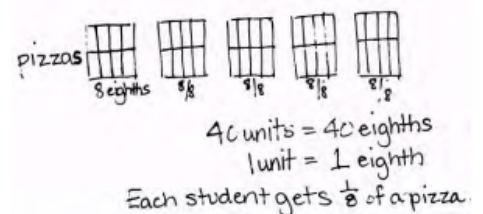 pizzas
8 eighths 8/8 8/8 8/8 8/8
40 units = 40 eighths
1 unit = 1 eighth
Each student gets 1/8 of a pizza.